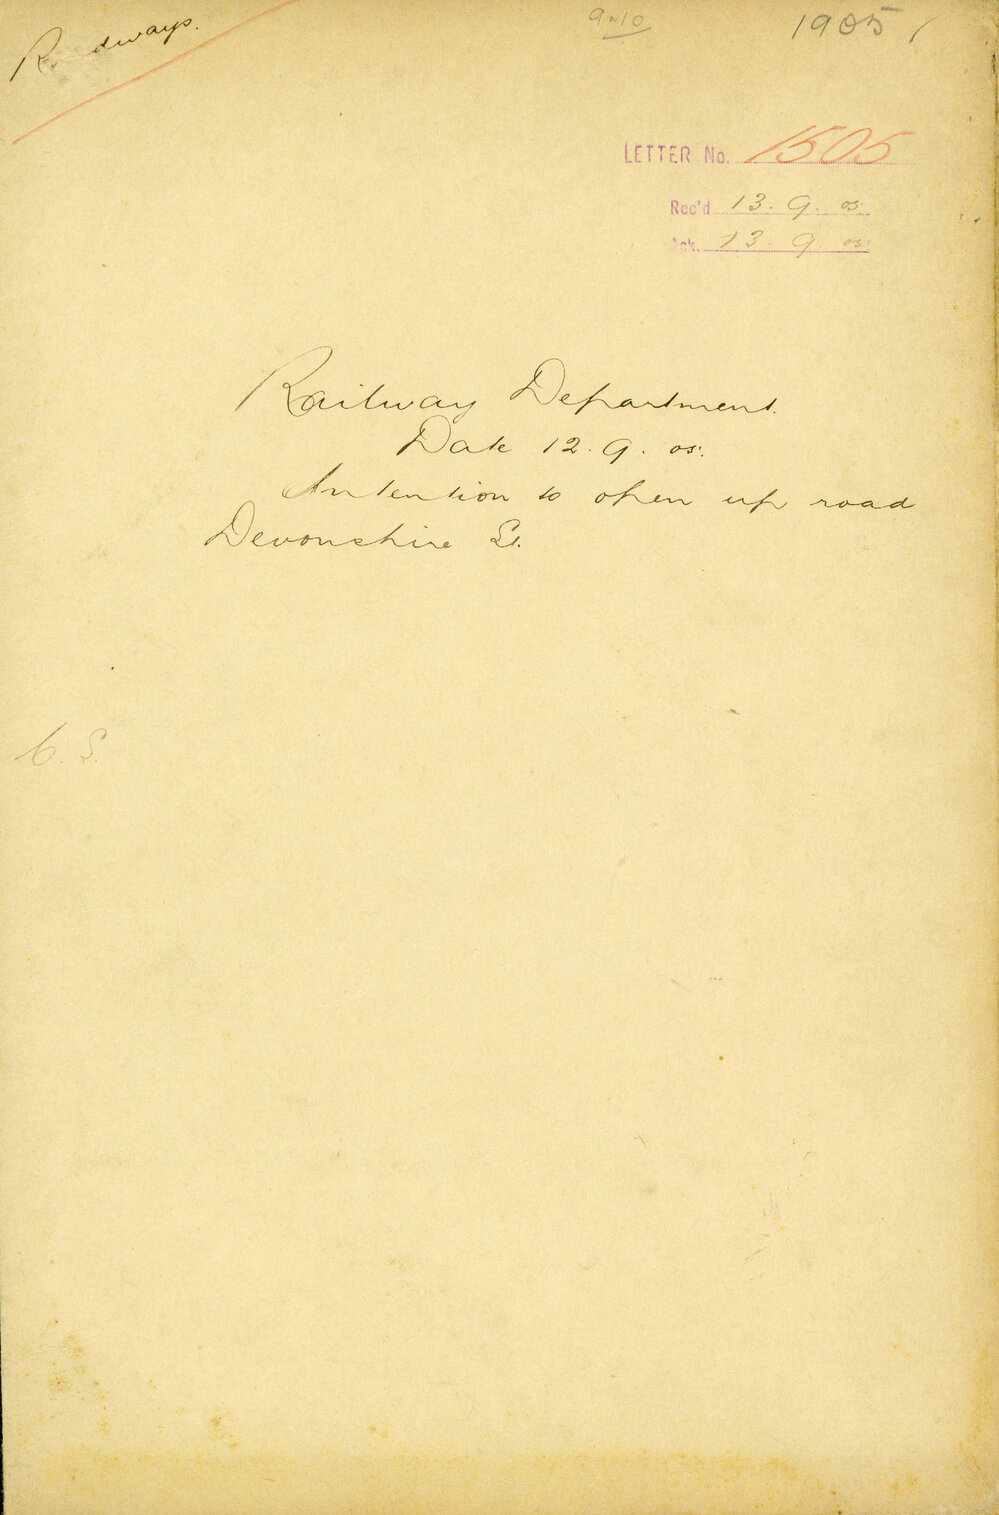 Roadways.
9-10
1905
LETTER No. 1505
Rec'd 13. 9. 05.
Ack. 13. 9 05.
Railway Department.
Date 12. 9. 05.
Intention to open up road
Devonshire St.
C. S.